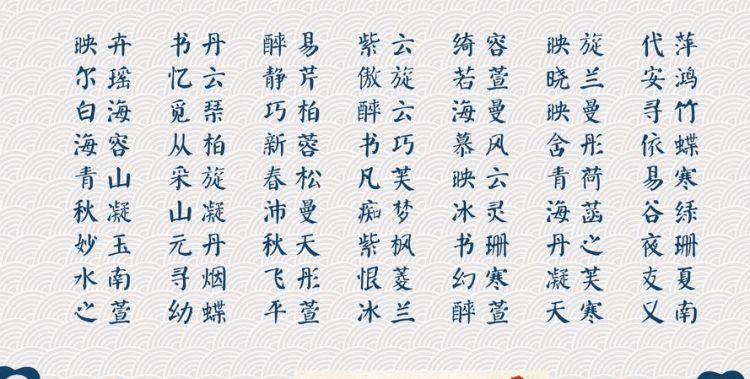 映卉 书丹 醉易 紫云 绮容 映旋 代萍
尔瑶 忆云 静芹 傲旋 若萱 晓兰 安鸿
白海 觅琹 巧柏 醉云 海曼 映曼 寻竹
海容 从柏 新蓉 书巧 慕风 舍彤 依蝶
青山 采旋 春松 凡芙 映云 青荷 易寒
秋凝 山凝 沛曼 痴梦 冰灵 海菡 谷绿
妙玉 元丹 秋天 紫枫 书珊 丹之 夜珊
水南 寻烟 飞彤 恨菱 幻寒 凝芙 友夏
之萱 幼蝶 平萱 冰兰 醉萱 天寒 又南